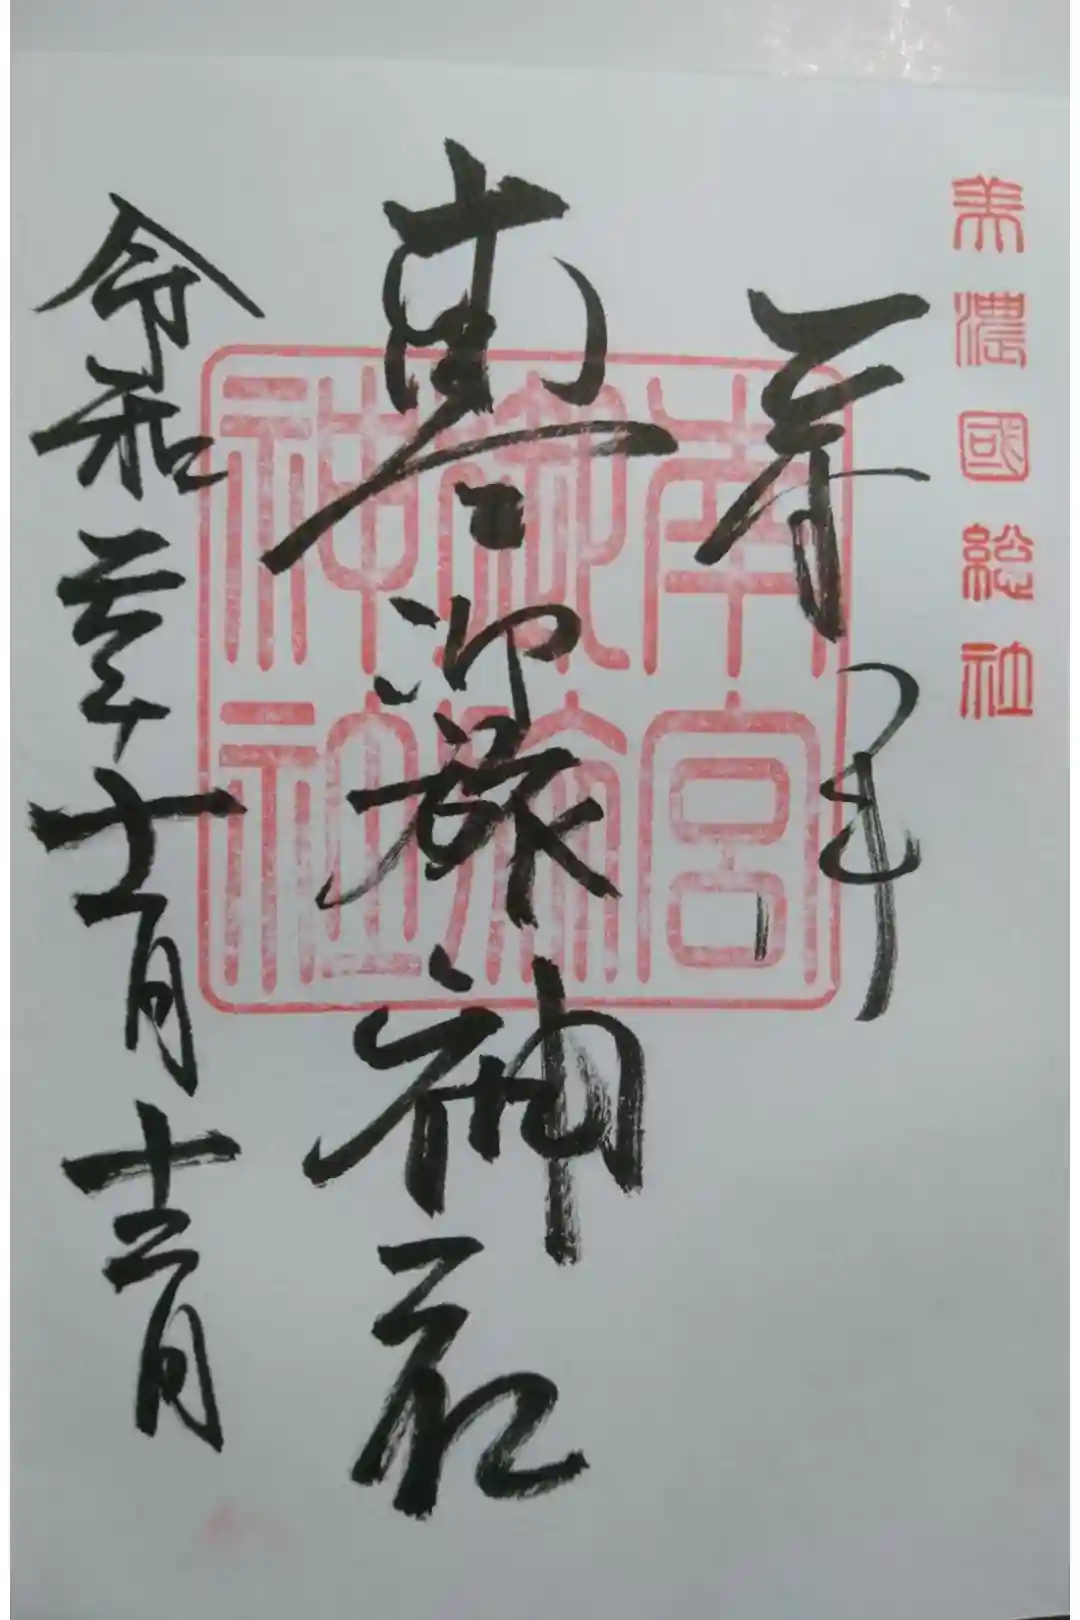 美濃國総社
奉拝
南宮御旅神社
南宮
御旅
神社
令和 年十一月十 日